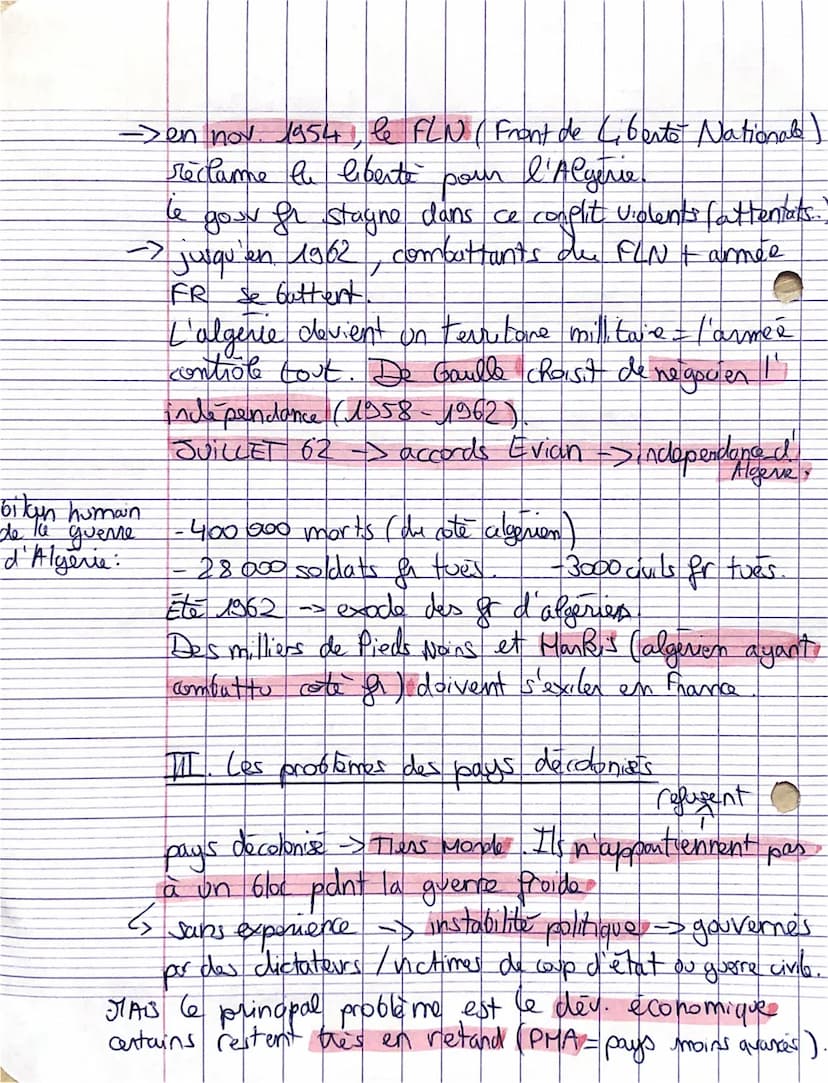 → en nov. 1954, le FLN (Front de Liberté Nationale)
réclame la liberté pour l'Algérie.
le gouv fr stagne dans ce conflit violents (attentats.)
→ jusqu'en 1962, combattants du FLN + armée
FR se battent.
L'algérie devient un territoire militaire = l'armée
contrôle tout. De Gaulle choisit de négocier l'
indépendance (1958-1962).
JUILLET 62 → accords Evian → indépendance d'
Algérie.
bilan humain
de la guerre
d'Algérie:
- 400 000 morts (du coté algérien)
- 28 000 soldats fr tués. - 3000 civils fr tués.
Eté 1962 → exode des fr d'algérien.
Des milliers de Pieds Noirs et Harkis (algérien ayant
combattu coté fr) doivent s'exiler en France.
III. Les problèmes des pays décolonisés
refusent
pays décolonisé → Tiers Monde. Ils n'appartiennent pas
à un bloc pdnt la guerre froide
↳ sans expérience → instabilité politique → gouvernés
par des dictateurs / victimes de coup d'état ou guerre civile.
MAIS le principal problème est le dév. économique
certains restent très en retard (PMA = pays moins avancés).